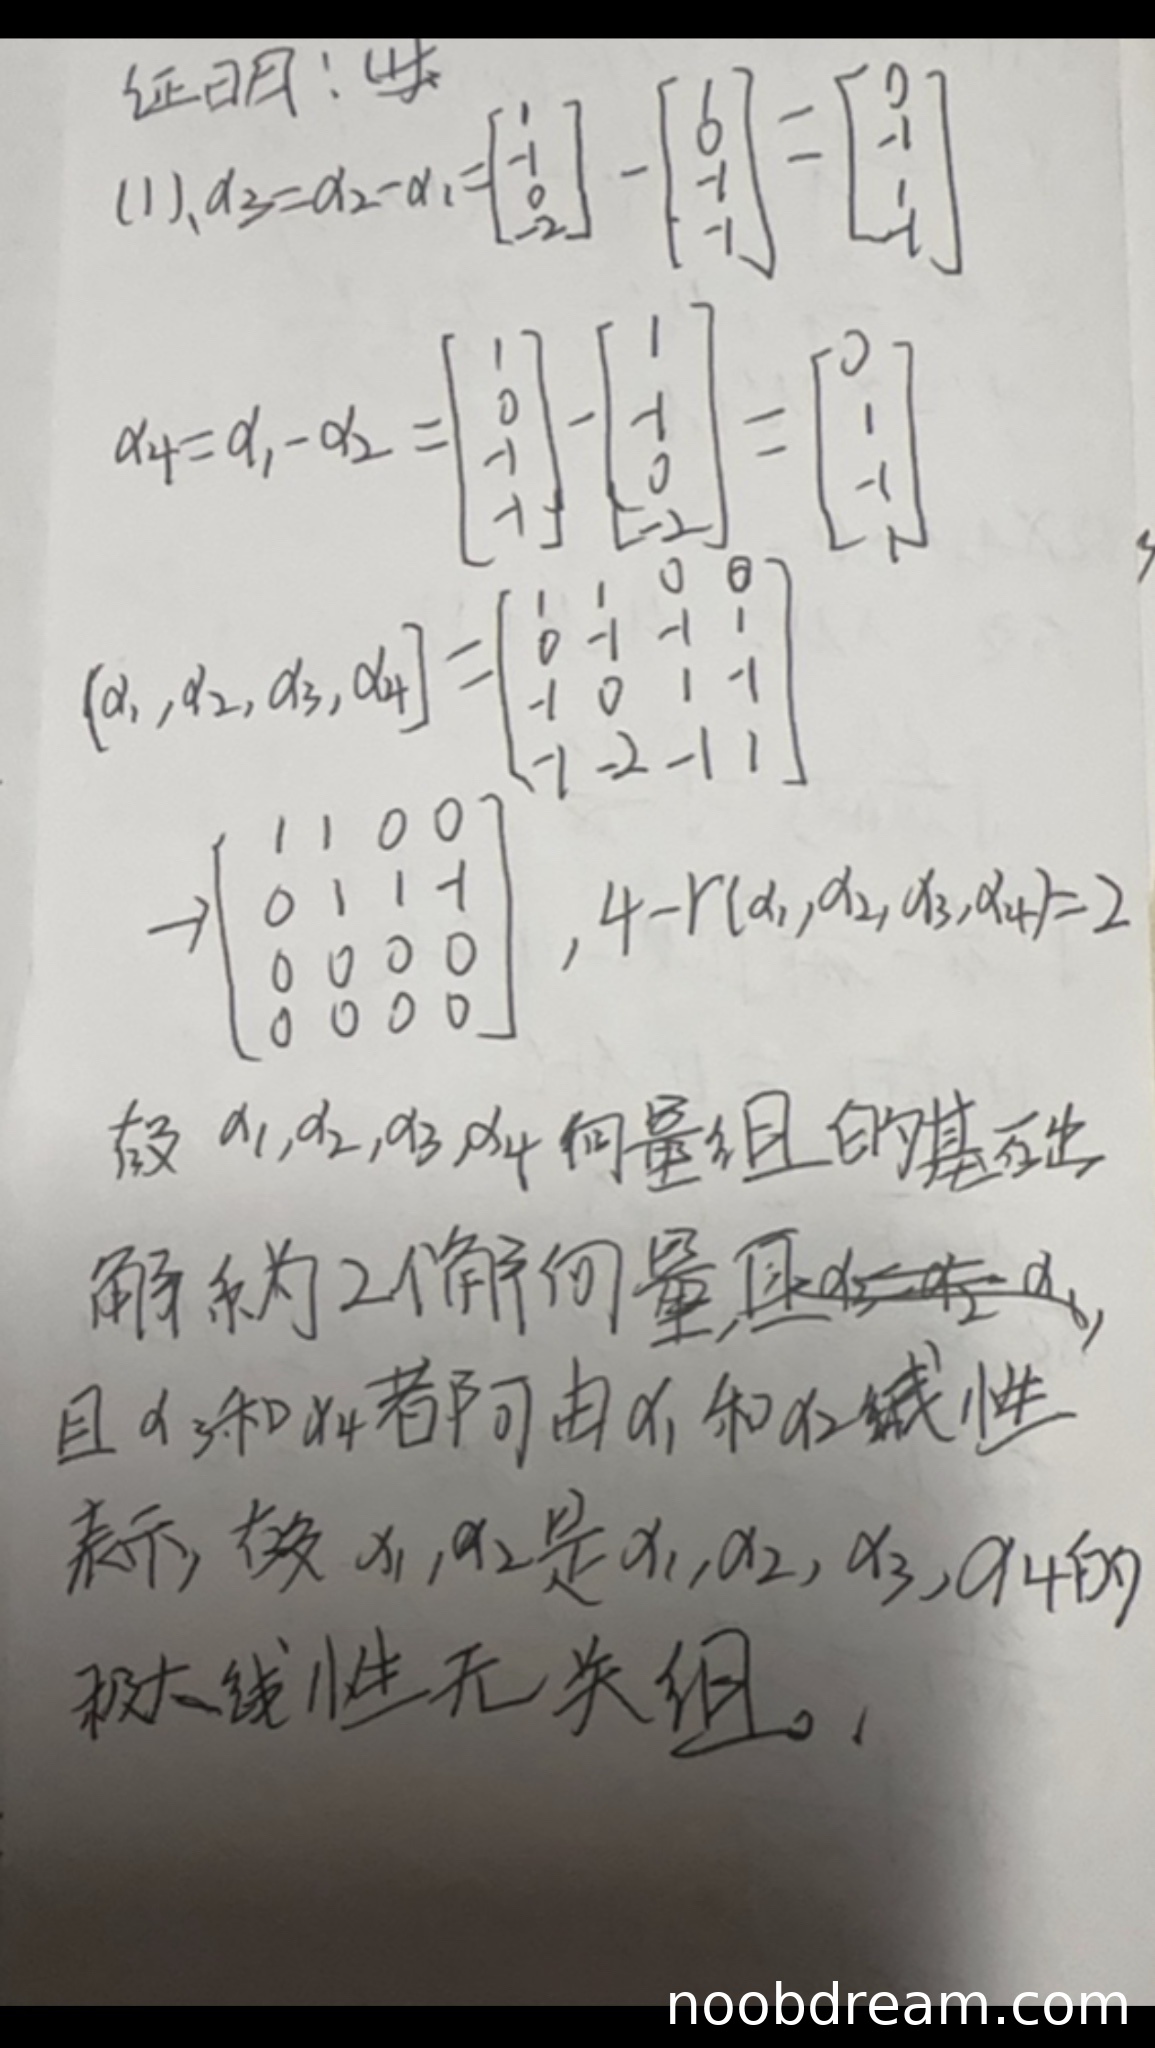 证明:
(1)、α3=α2-α1=[1 -1 0 -2] - [1 0 -1 -1] = [0 -1 1 -1]
α4=α1-α2=[1 0 -1 -1] - [1 -1 0 -2] = [0 1 -1 1]
[α1,α2,α3,α4]=[1 1 0 0
0 -1 -1 1
-1 0 1 -1
-1 -2 -1 1]
→[1 1 0 0
0 1 1 -1
0 0 0 0
0 0 0 0], 4-r(α1,α2,α3,α4)=2
故 α1,α2,α3,α4 向量组的基础
解系为2个解向量,
且α3和α4都可由α1和α2线性
表示,故 α1,α2是α1,α2,α3,α4的
极大线性无关组。
noobdream.com